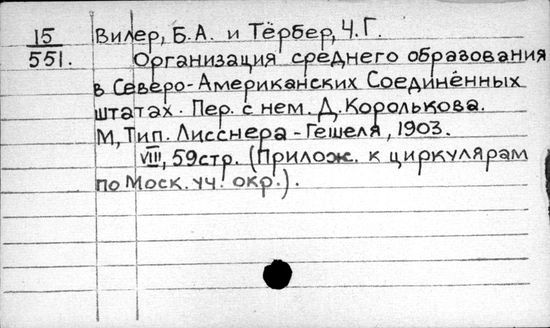 15 Вилер, Б.А. и Тёрбер, Ч.Г.
551. Организация среднего образования
в Северо-Американских Соединённых
штатах. Пер. с нем. Д. Королькова.
М, Тип. Лисснера-Гешеля, 1903.
VIII, 59стр. (Прилож. к циркулярам
по Моск. уч. окр.).